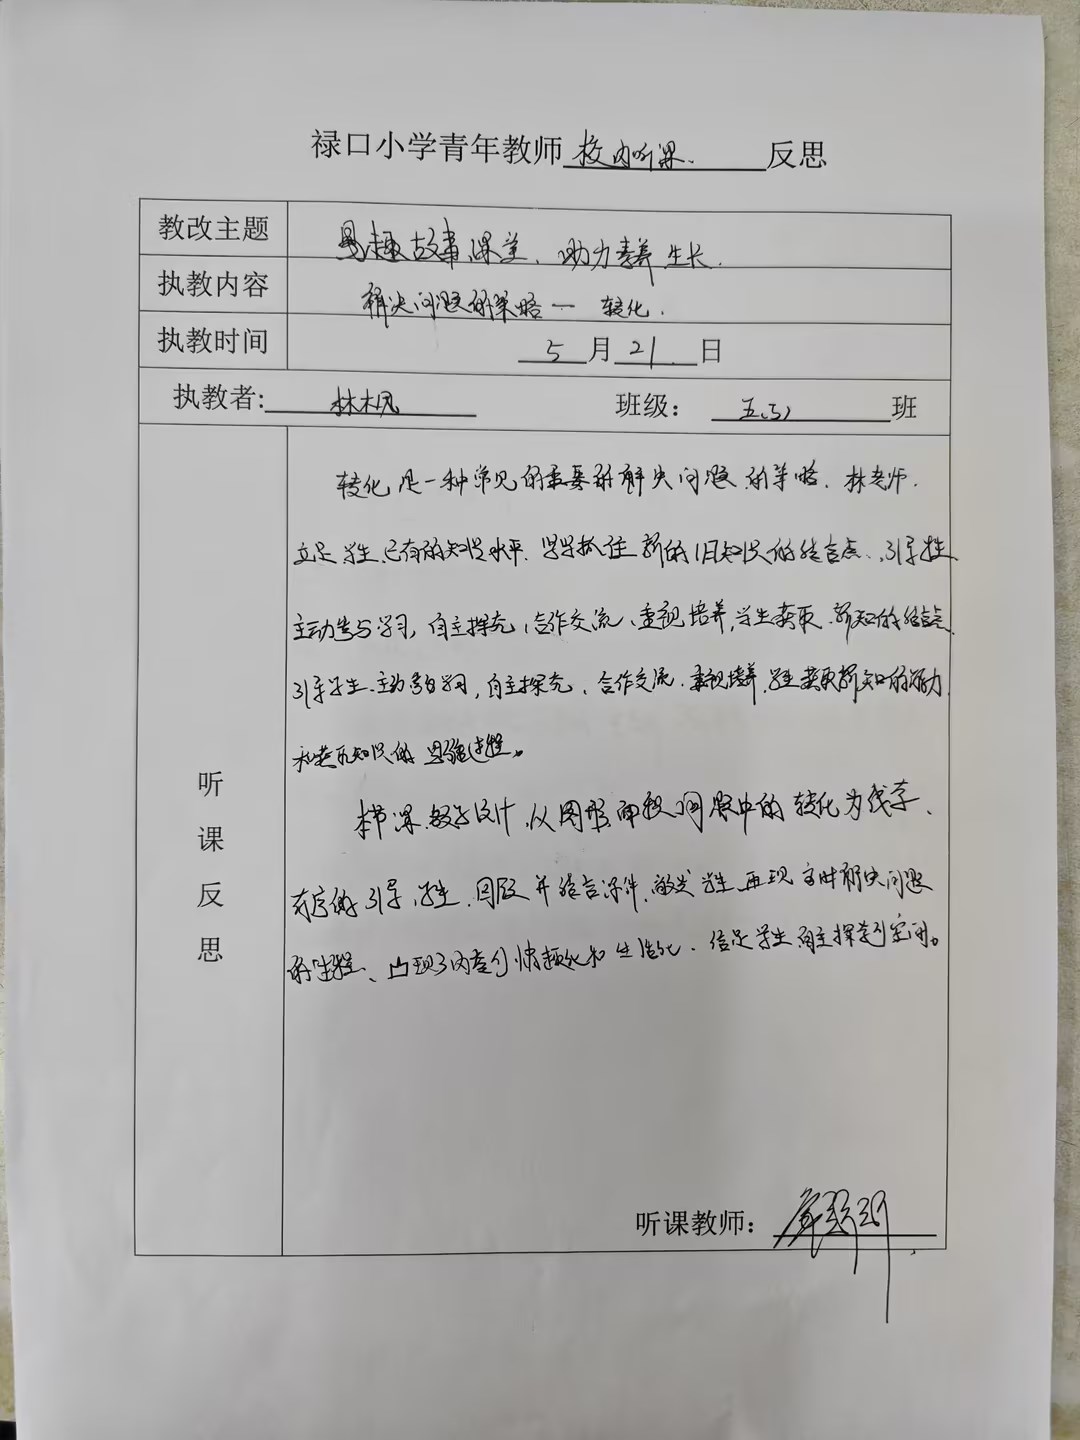 禄口小学青年教师校内听课反思
教改主题 趣故事课堂、助力素养生长
执教内容 解决问题的策略— 转化
执教时间 5月21日
执教者: 林枫 班级: 五(3)班
听课反思
转化是一种常见的重要的解决问题的策略. 林老师
立足学生已有的知识水平. 紧紧抓住新的旧知识的结合点、引导学生
主动参与学习, 自主探究, 合作交流、重视培养学生获取新知的结合点
引导学生主动参与学习, 自主探究、合作交流. 重视培养学生获取新知的能力
和获取知识的思维过程。
本节课教学设计, 从图形面积问题中的转化为线索、
有序的引导学生回顾并结合课件, 启发学生再现当时解决问题
的过程、凸现了内容的情趣化和生活化. 给足学生自主探索的空间。
听课教师: